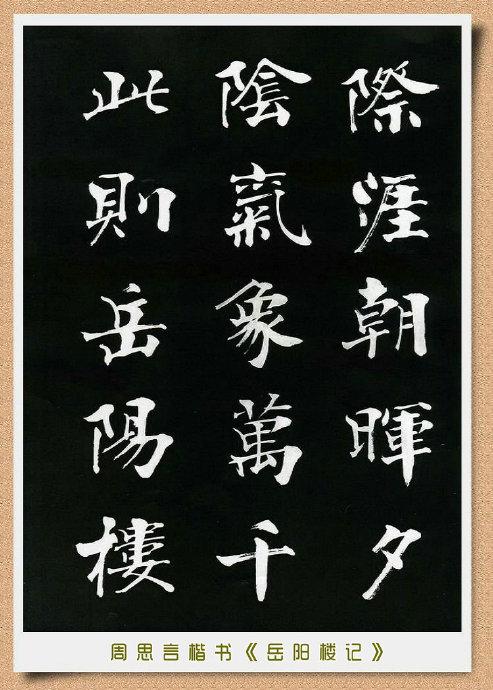 際涯朝暉夕
陰氣象萬千
此則岳陽樓
周思言楷书《岳阳楼记》